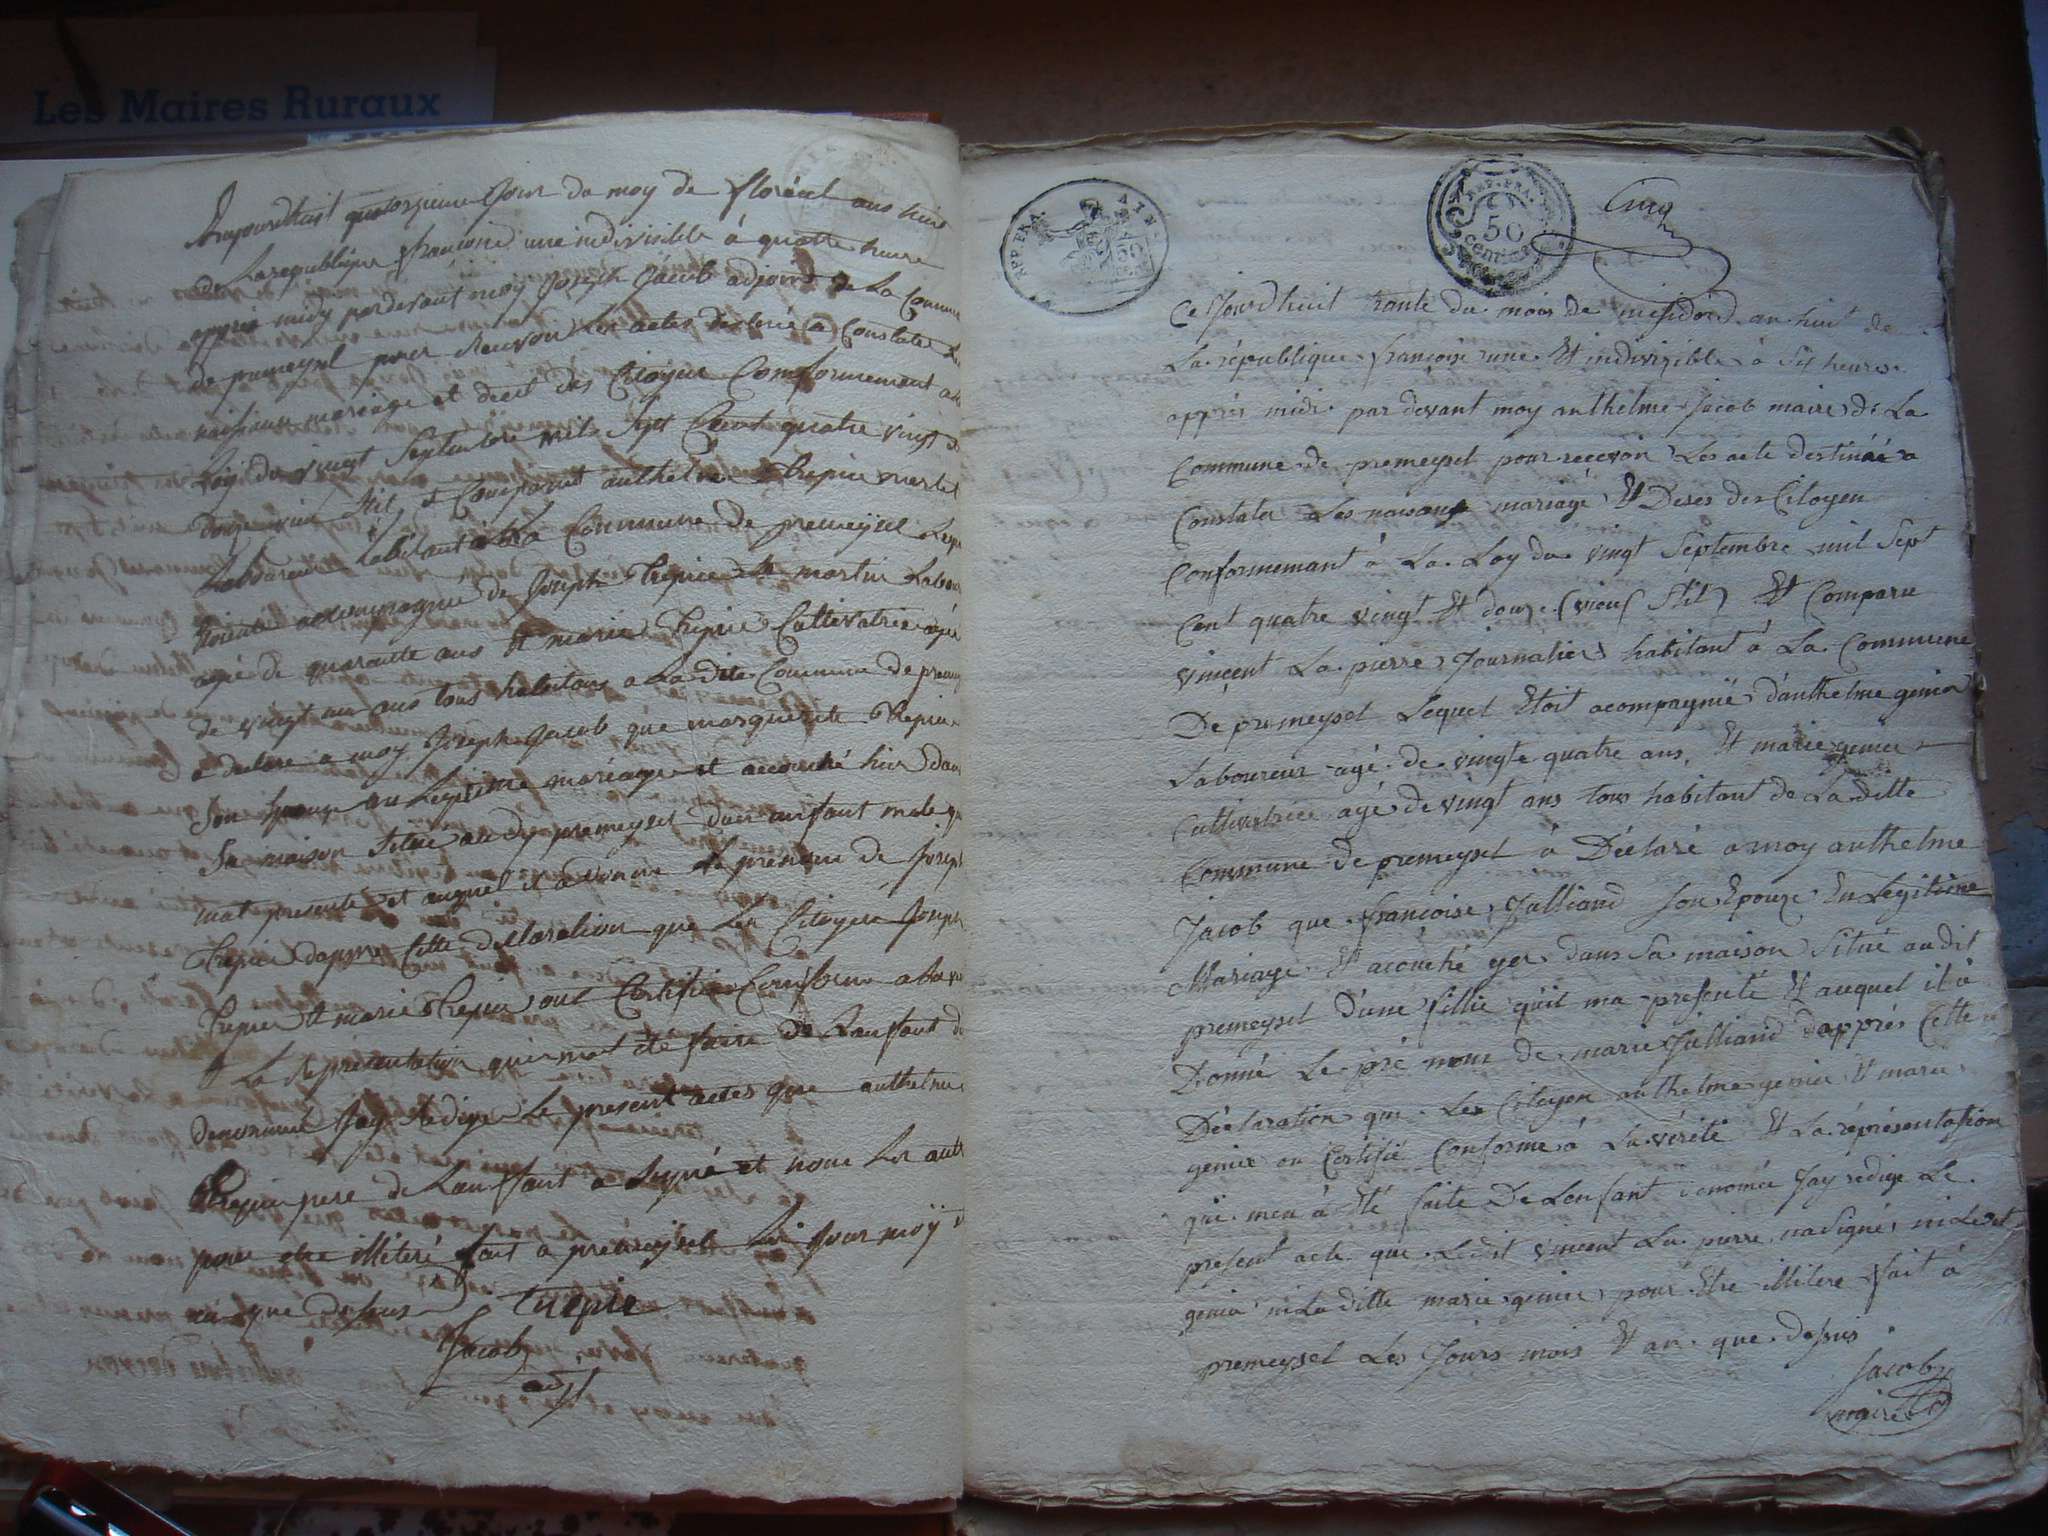 Les Maires Ruraux
Aujourdhuit quatorzieme Jour du moy de floréal ans huit
de La republique francoise une indivisible à quatre heure
appres midy pardevant moy Joseph Jacob adjoint de La Commune
de premeysel pour Recevoir Les actes destiné a Constater Les
naissance mariage et decet des Citoyen Conformement a la
Loy du vingt Septembre mil Sept Cent quatre vingt et
douze vieu stil, et Comparut anthelme trepier
Laboureur habitant a La Commune de premeysel Lequel
accompagnié de Joseph Trepier martin Laboureur
agée de quarante ans Et marie Trepier Cultivatrice agée
de vingt un ans tous habitans a La dite Commune de premeysel
a declaré a moy Joseph Jacob que marguerite Trepier
Son Epouze au Legitime mariage et accouché hier dans
Sa maison Situé au dy premeysel d'un anfant male qui
mat presenté et auquel il a donné Le prenom de Joseph
Trepier dappre Cette declaration que Les Citoyen Joseph
Trepier Et marie Trepier ont Certifié Conforme a la
Et La Representation qui mat été faite de Lanfant
denommé Jay Redige Le present actes que anthelme
Trepier pere de Lanfant a Signé et nom Les autre
pour etre illiteré fait a premeysel Les Jour moÿ
an que desus
trepie
Jacob
adjt
APP ERA
AIN
50
REP. FRA
50
centimes
Cinq
Ce Jourdhuit trante du mois de mesidord an huit de
La république francoise une Et indivizible à Six heures
apprés midi par devant moy anthelme Jacob maire de La
Commune de premeysel pour recevoir Les acte destinéé a
Constater Les naisance mariage Et Deses des Citoyen
Conformemant à La Loy du vingt Septembre mil Sept
Cent quatre vingt Et douze (vieux Stil) Et Comparu
vincent La pierre Journalier habitant à La Commune
De premeysel Lequel Etoit acompagnié d'anthelme genier
Laboureur agé de vingte quatre ans, Et marie genier
Cultivatrice agé de vingt ans tous habitant de La ditte
Commune de premeysel à Déclaré a moy anthelme
Jacob que francoise Julliand Son Epouze En Legitime
Mariage Et acouché yer dans Sa maison Situé audit
premeysel D'une fillie quil ma presenté Et auquel il à
Donné Le pré nom de marie Julliand dapprés Cette
Déclaration que Les Citoyen anthelme genier Et marie
genier on Certifié Conforme à La vérité Et La réprésentation
qui men à Eté faite De Lenfant denomée Jay redige Le
present acte que Ledit vincent La pierre na Signé ni Ledit
genier ni La ditte marie genier pour Etre illitere fait à
premeysel Les Jours mois Et an que desus
Jacob
maire